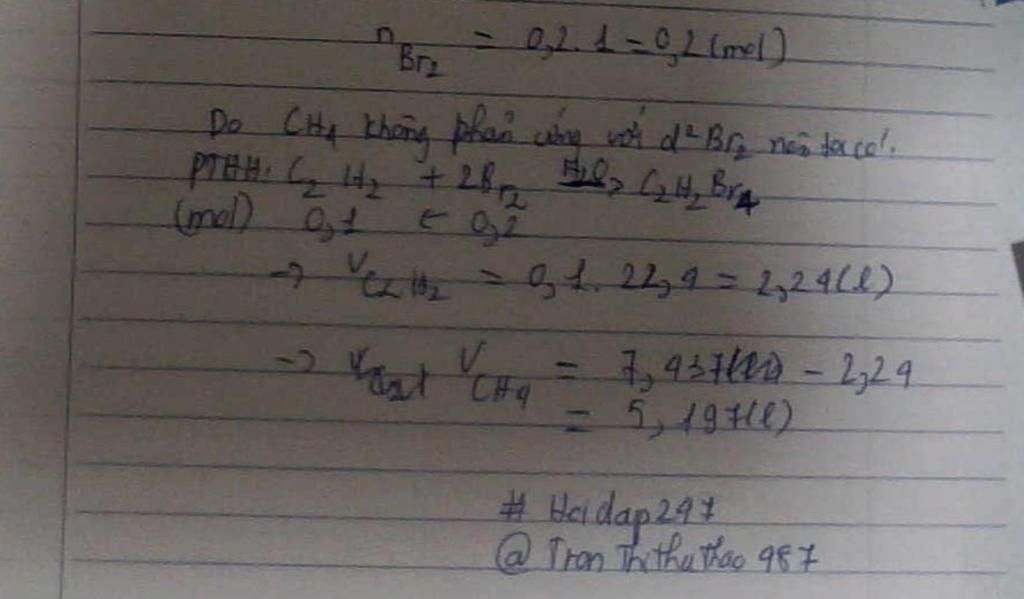 n Br₂ = 0,2.1 = 0,2 (mol)
Do CH4 không phản ứng với d² Br₂ nên ta có:
PTHH: C₂H₂ + 2Br₂ H₂O→ C₂H₂Br₄
(mol) 0,1 ← 0,2
→ V C₂H₂ = 0,1.22,4 = 2,24(l)
→ V CH4 = 7,437 - 2,24
= 5,197(l)
# Hoidap247
@ Tran Thi thu thao 987